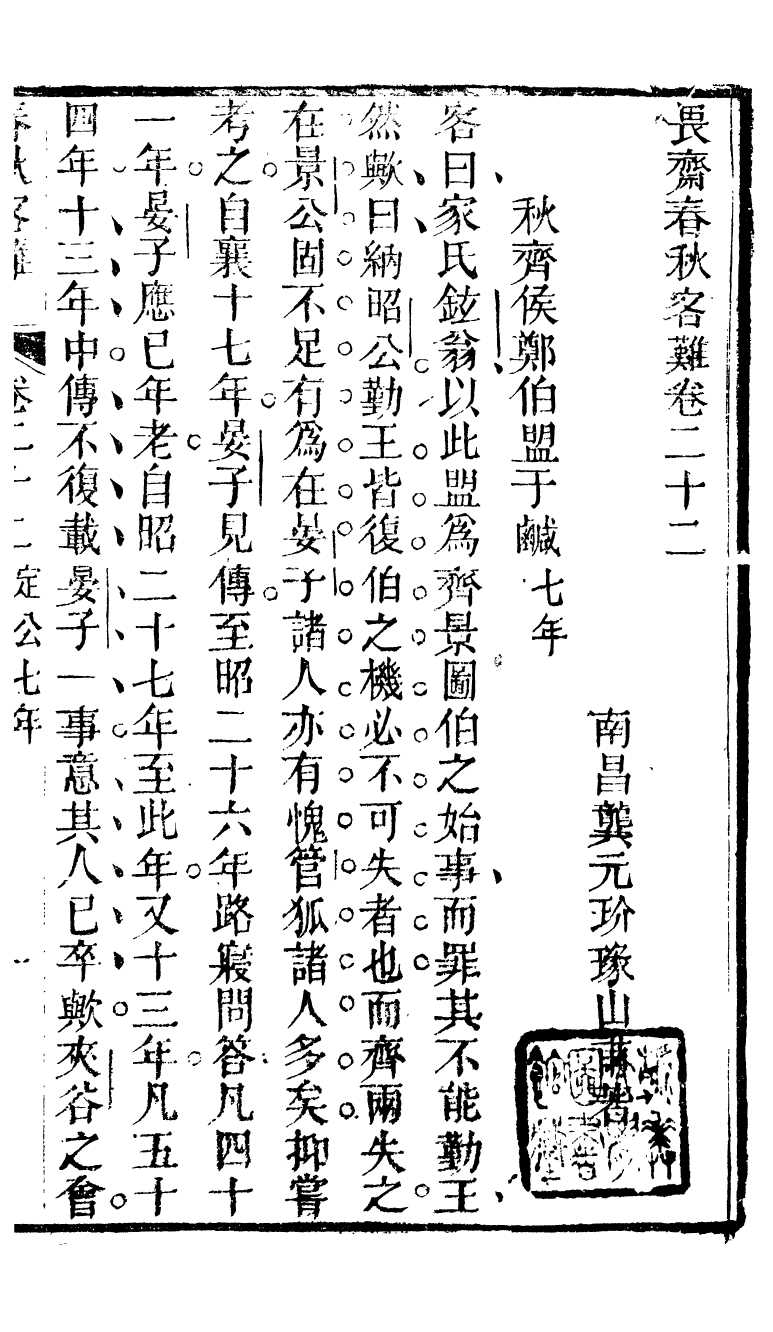 畏齋春秋客難卷二十二
南昌龔元玠瑑山甫著
秋齊侯鄭伯盟于鹹七年
客曰家氏鉉翁以此盟爲齊景圖伯之始事而罪其不能勤王
然歟曰納昭公勤王皆復伯之機必不可失者也而齊兩失之
在景公固不足有爲在晏子諸人亦有愧管狐諸人多矣抑嘗
考之自襄十七年晏子見傳至昭二十六年路寢問答凡四十
一年晏子應已年老自昭二十七年至此年又十三年凡五十
四年十三年中傳不復載晏子一事意其人已卒歟夾谷之會
春秋客難 卷二十二 定公七年